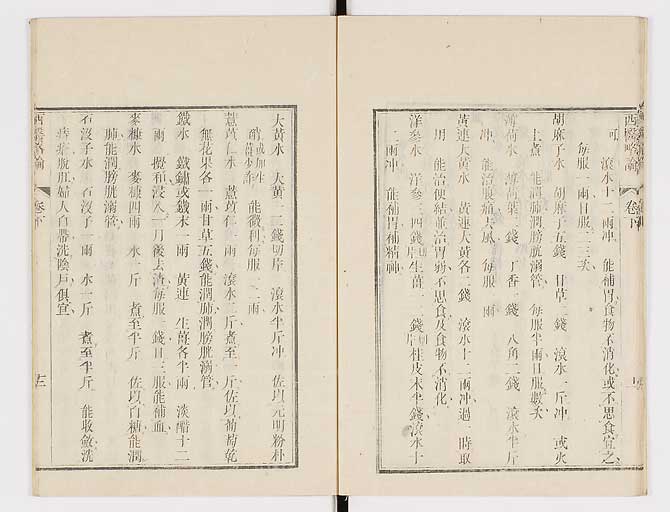 西醫略論
卷下
可 滾水十二兩沖 能補胃食物不消化或不思食宜之
每服一兩日服二三次
胡麻子水 胡麻子五錢 甘草二錢 滾水一斤沖 或火
上煮 能潤肺潤膀胱溺管 每服半兩日服數次
薄荷水 薄荷葉 錢 丁香 錢 八角二錢 滾水半斤
沖 能治腹痛去風 每服 兩
黃連大黃水 黃連大黃各一錢 滾水十二兩沖過一時取
用 能治便結並治胃弱不思食及食物不消化
洋參水 洋參三四錢 生薑一二錢 桂皮末半錢滾水十
二兩沖 能補胃補精神
大黃水 大黃二三錢切片 滾水半斤沖 佐以元明粉朴
硝 能微利每服一二兩
薏苡仁水 薏苡仁一兩 滾水二斤煮至一斤佐以葡萄乾
無花果各一兩甘草五錢能潤肺潤膀胱溺管
鐵水 鐵鏽或鐵末一兩 黃連 生薑各半兩 淡醋十二
兩 攪和浸八一月後去渣每服 錢日三服能補血
麥糠水 麥糠四兩 水一斤 煮至半斤 佐以白糖能潤
肺能潤膀胱溺管
石沒子水 石沒子一兩 水一斤 煮至半斤 能收斂洗
痔瘡脫肛婦人白帶洗陰戶俱宜
西醫略論
卷下
十三